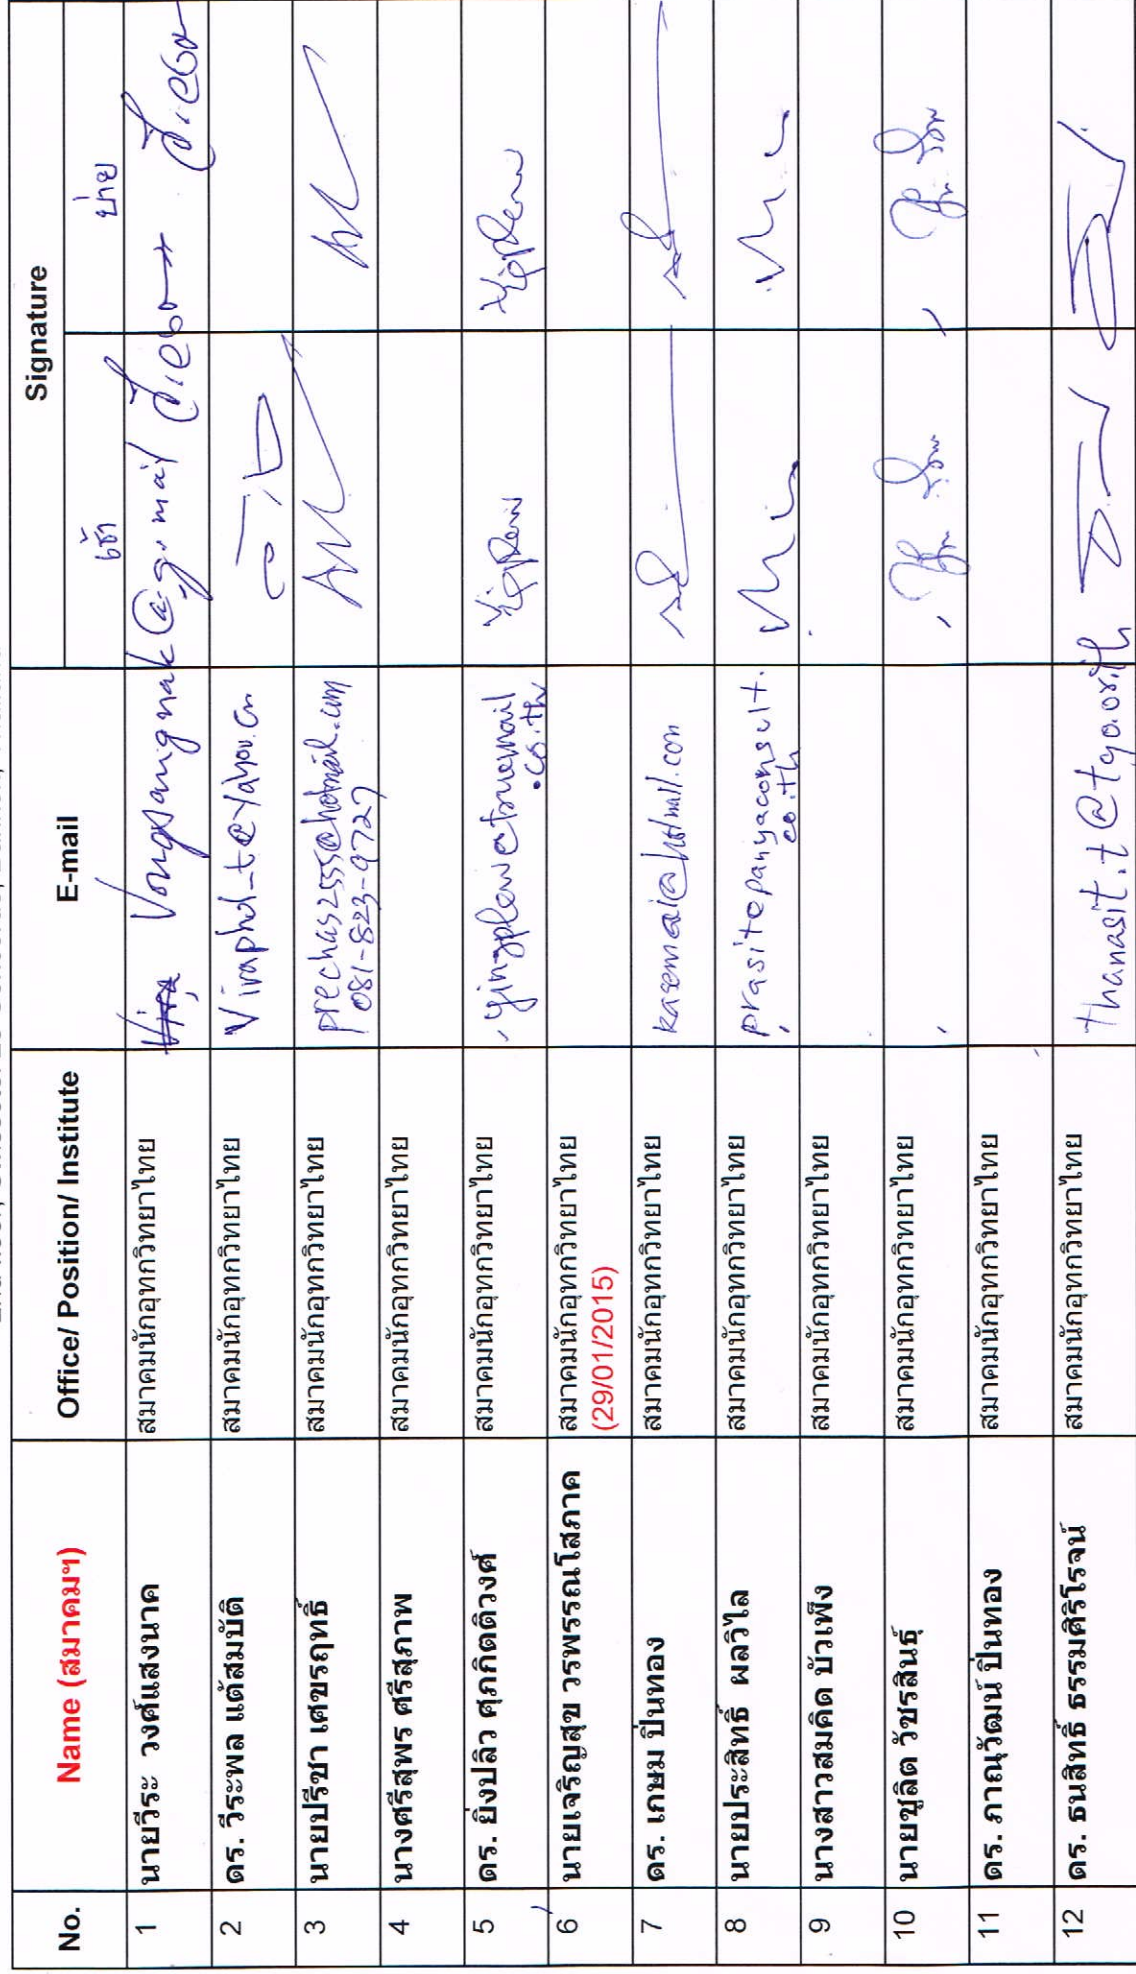 No. Name (สมาคมฯ) Office/ Position/ Institute E-mail Signature
เช้า บ่าย
1 นายวีระ วงศ์แสงนาค สมาคมนักอุทกวิทยาไทย Vira Vongsangnak@gmail
2 ดร. วีระพล แต้สมบัติ สมาคมนักอุทกวิทยาไทย Viraphol_t@yahoo.cn
3 นายปรีชา เศขรฤทธิ์ สมาคมนักอุทกวิทยาไทย prechas2555@hotmail.com
081-823-9727
4 นางศรีสุพร ศรีสุภาพ สมาคมนักอุทกวิทยาไทย
5 ดร. ยิ่งปลิว ศุภกิตติวงศ์ สมาคมนักอุทกวิทยาไทย yingplew@truemail
.co.th
6 นายเจริญสุข วรพรรณโสภาค สมาคมนักอุทกวิทยาไทย
(29/01/2015)
7 ดร. เกษม ปิ่นทอง สมาคมนักอุทกวิทยาไทย kasemai@hotmail.com
8 นายประสิทธิ์ ผลวิไล สมาคมนักอุทกวิทยาไทย prasit@panyaconsult.
co.th
9 นางสาวสมคิด บัวเพ็ง สมาคมนักอุทกวิทยาไทย
10 นายชูลิต วัชรสินธุ์ สมาคมนักอุทกวิทยาไทย
11 ดร. ภาณุวัฒน์ ปิ่นทอง สมาคมนักอุทกวิทยาไทย
12 ดร. ธนสิทธิ์ ธรรมศิริโรจน์ สมาคมนักอุทกวิทยาไทย thanasit.t@tga.or.th